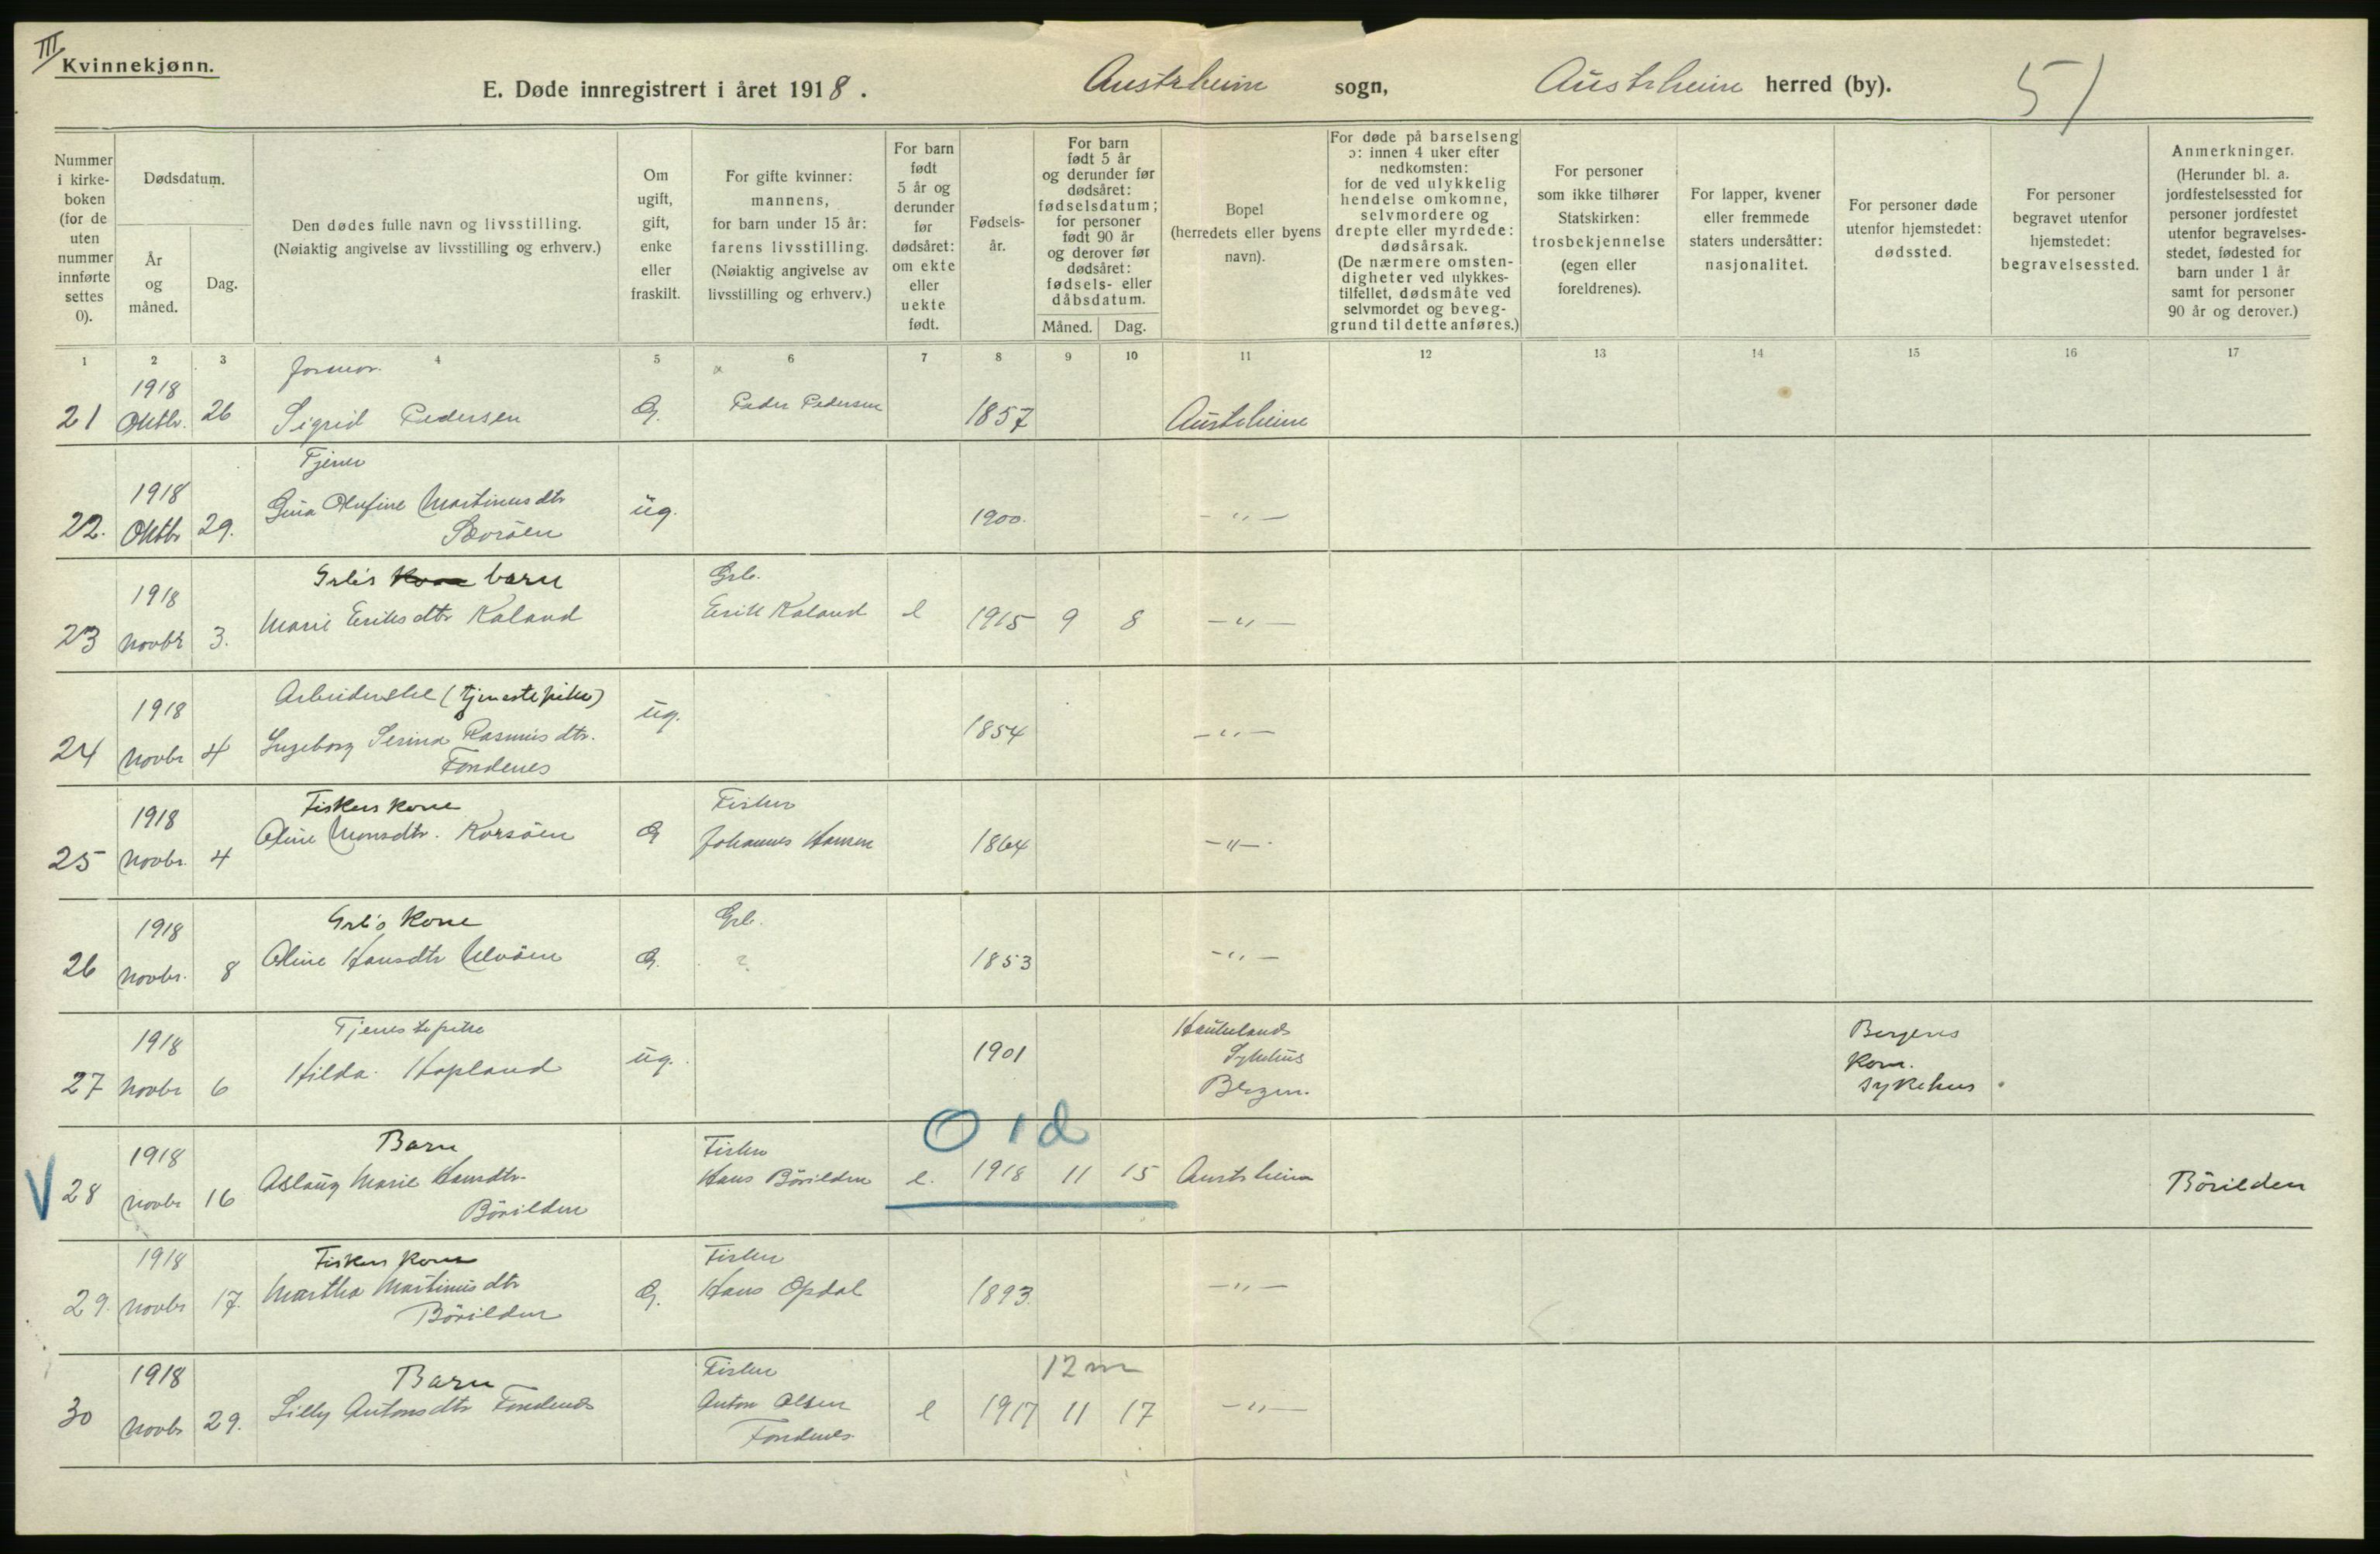 III
Kvinnekjønn.
E. Døde innregistrert i året 1918. Austrheim sogn, Austrheim herred (by). 51
Nummer i kirke- boken (for de uten nummer innførte settes 0).
Dødsdatum.
År og måned.
Dag.
Den dødes fulle navn og livsstilling.
(Nøiaktig angivelse av livsstilling og erhverv.)
Om ugift, gift, enke eller fraskilt.
For gifte kvinner: mannens, for barn under 15 år: farens livsstilling. (Nøiaktig angivelse av livsstilling og erhverv.)
For barn født 5 år og derunder før dødsåret: om ekte eller uekte født.
Fødsels- år.
For barn født 5 år og derunder før dødsåret: fødselsdatum; for personer født 90 år og derover før dødsåret: fødsels- eller dåbsdatum.
Måned. Dag.
Bopel (herredets eller byens navn).
For døde på barselseng ɔ: innen 4 uker efter nedkomsten: for de ved ulykkelig hendelse omkomne, selvmordere og drepte eller myrdede: dødsårsak. (De nærmere omsten- digheter ved ulykkes- tilfellet, dødsmåte ved selvmordet og beveg- grund til dette anføres.)
For personer som ikke tilhører Statskirken: trosbekjennelse (egen eller foreldrenes).
For lapper, kvener eller fremmede staters undersåtter: nasjonalitet.
For personer døde utenfor hjemstedet: dødssted.
For personer begravet utenfor hjemstedet: begravelsessted.
Anmerkninger. (Herunder bl. a. jordfestelsessted for personer jordfestet utenfor begravelses- stedet, fødested for barn under 1 år samt for personer 90 år og derover.)
1 2 3 4 5 6 7 8 9 10 11 12 13 14 15 16 17
1918
21 Oktbr. 26 Sigrid Pedersen G. Peder Pedersen 1857 Austrheim
Tjener
1918 Gina Olufine Martinusdtr
22. Oktbr 29. ug. 1900. -"-
Grb's barn Grb.
1918 Marie Eriksdtr Kaland Erik Kaland
23 Novbr 3. e 1915 9 8 -"-
Arbeiderske (tjenestepike)
1918 Ingeborg Serina Rasmusdtr.
24 Novbr 4 Fondenes ug. 1854 -"-
Fiskers kone Fisker
1918 Oline Monsdtr. Korsöen G Johannes Hansen
25 Novbr. 4 1864 -"-
Grb's kone Grb.
1918 Oline Hansdtr Ulvöen G. ?
26 Novbr. 8 1853 -"-
Tjenestepike Haukelands Bergens
1918 Hilda Hopland ug. 1901 Sykehus Kom.
27 Novbr 6 Bergen. sykehus
0 1 d
Barn Fisker
1918 Aslaug Marie Hansdtr. Hans Börilden
V 28 Novbr 16 Börilden e. 1918 11 15 Austrheim Börilden
Fiskers kone Fisker
1918 Martha Martinusdtr Hans Opdal
29. Novbr 17. Börilden G. 1893. -"-
Barn Fisker 12 m
1918 Lilly Antonsdtr Fondenes Anton Olsen
30 Novbr 29. Fondenes e 1917 11 17 -"-